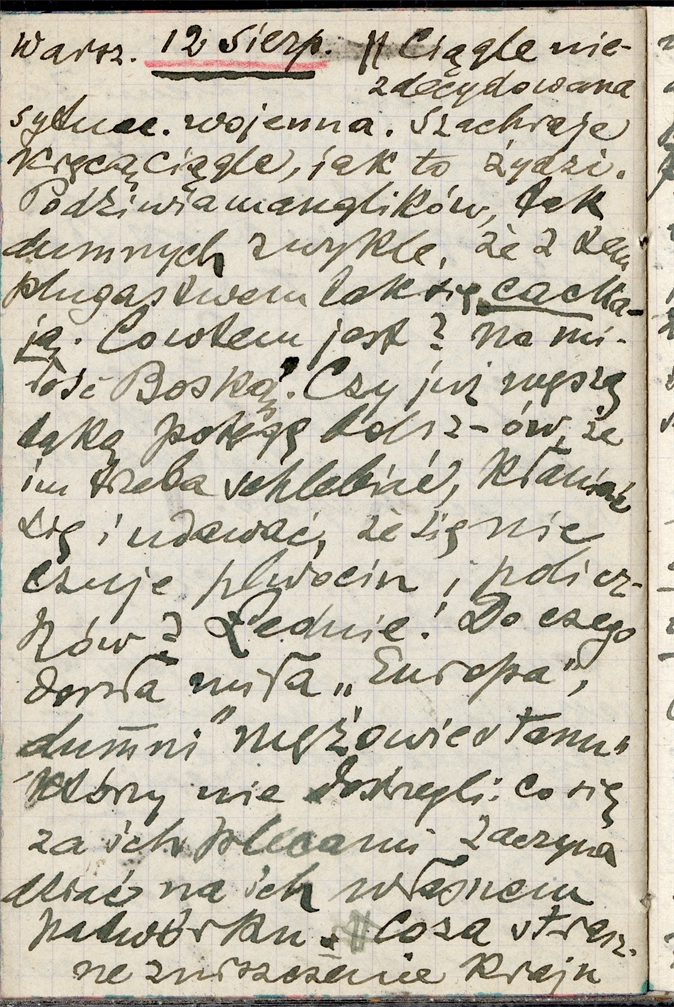 Warsz. 12 Sierp. || Ciągle nie-
zdecydowana
sytuac. wojenna. Szachraje
kręcą ciągle, jak to żydzi.
Podziwiam anglików, tak
dumnych zwykle, że z tem
plugastwem tak się cacka-
ją. Co w tem jest? Na mi-
łość Boską! Czy już
taką potęgę bolsz-ów, że
im trzeba schlebiać, kłaniać
się i udawać, że się nie
czuje plwocin, policz-
ków? Ładnie! Do czego
doszła miła „Europa",
dumni "mężowie stanu"
którzy nie dostrzegli: co się
za ich plecami zaczyna
dziać na ich własnem
podwórku. || Co za strasz-
ne zniszczenie kraju